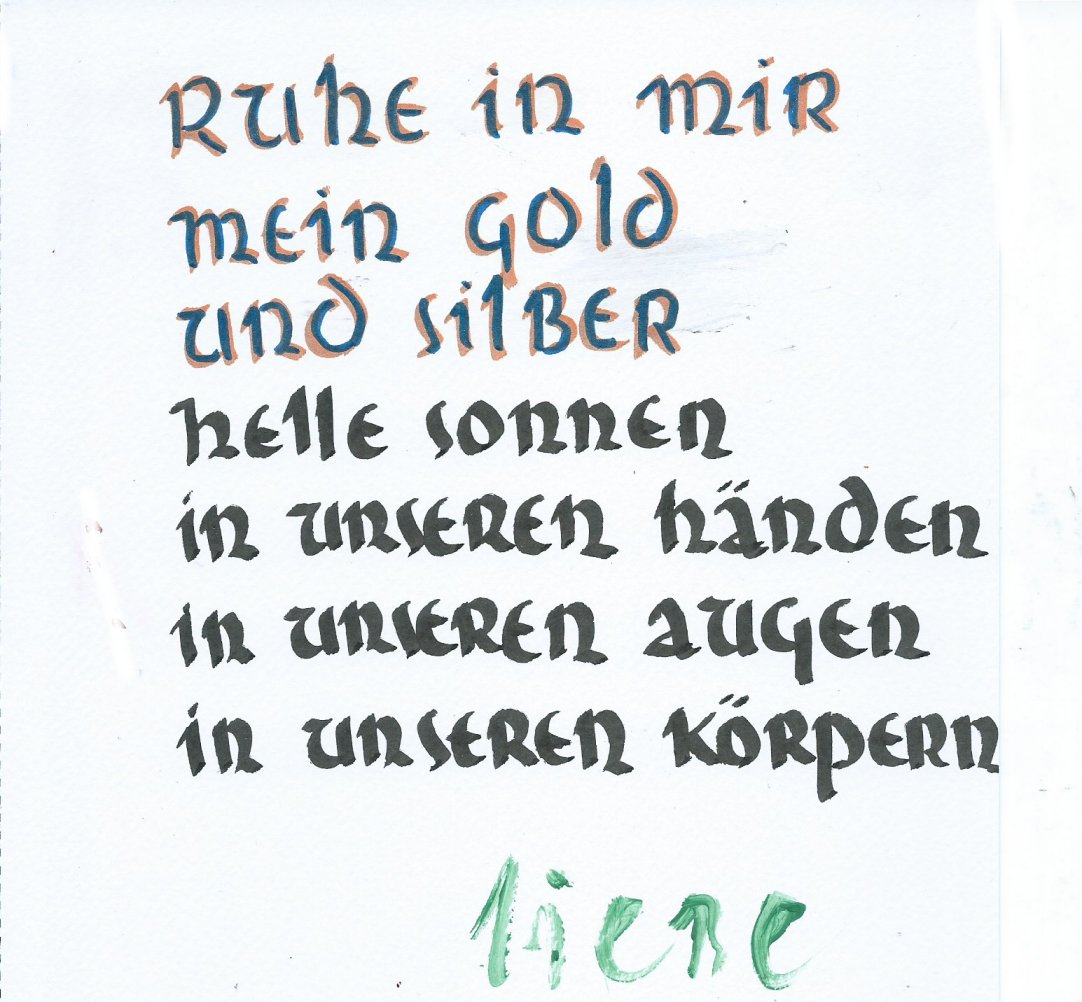 Ruhe in mir
mein gold
und silber
helle sonnen
in unseren händen
in unseren augen
in unseren körpern